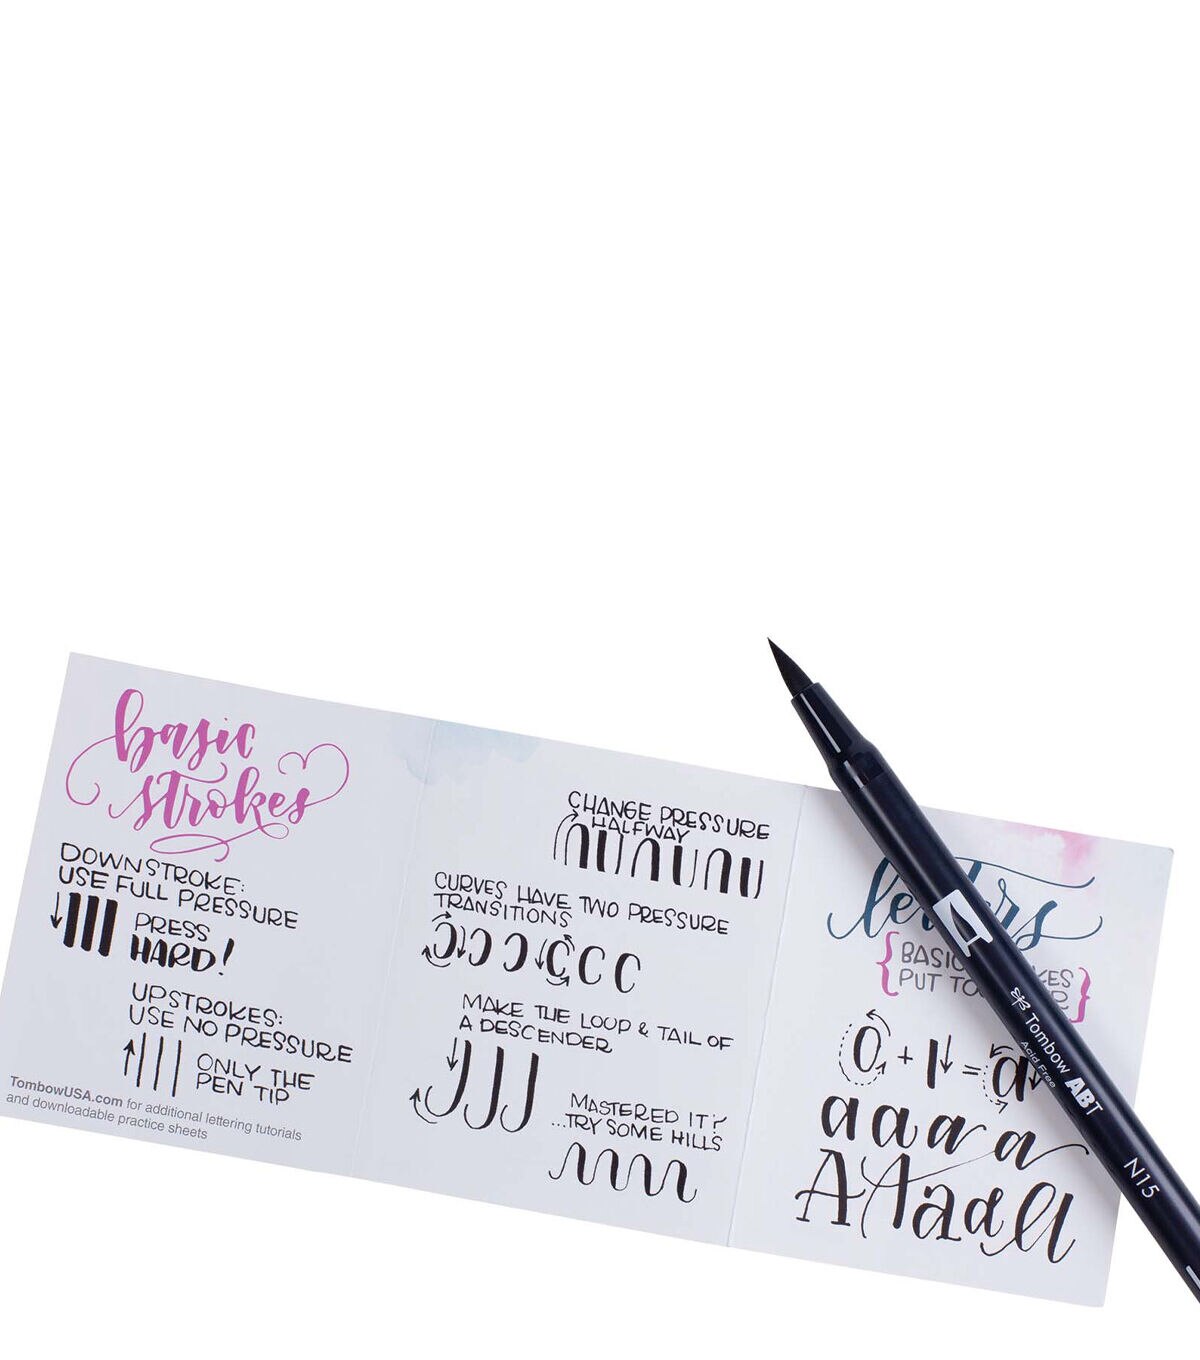 basic
strokes
DOWNSTROKE:
USE FULL PRESSURE
PRESS
HARD!
UPSTROKES:
USE NO PRESSURE
ONLY THE
PEN TIP
TombowUSA.com for additional lettering tutorials
and downloadable practice sheets
CHANGE PRESSURE
HALFWAY
CURVES HAVE TWO PRESSURE
TRANSITIONS
MAKE THE LOOP & TAIL OF
A DESCENDER
MASTERED IT?
...TRY SOME HILLS
letters
{BASIC
PUT }
O + l = a
a a a a
A A a a a
Tombow ABT
Acid Free
N15